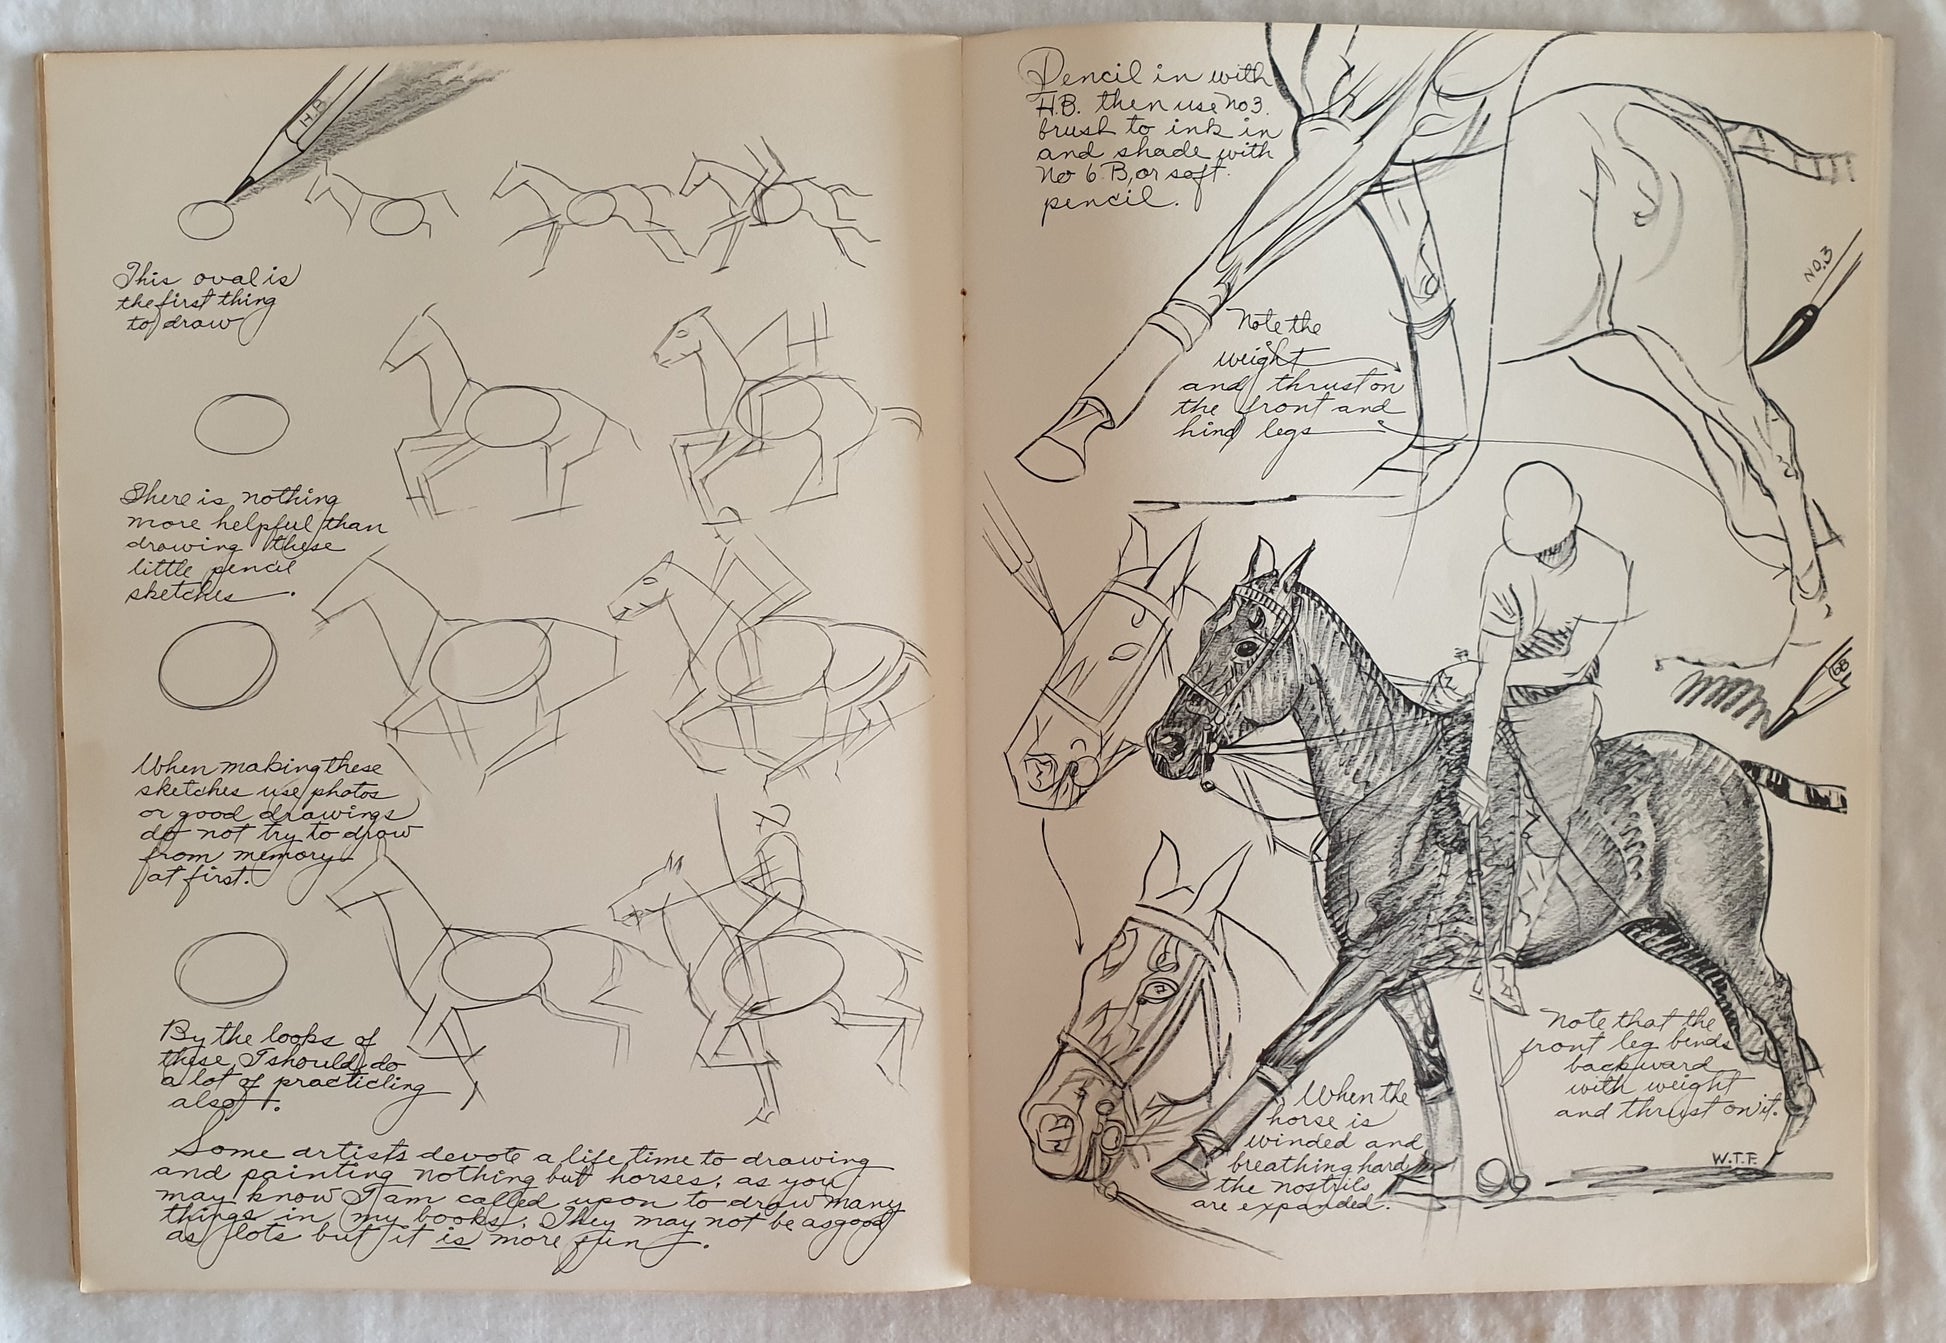 H.B.
This oval is
the first thing
to draw
There is nothing
more helpful than
drawing these
little pencil
sketches.
When making these
sketches use photos
or good drawings
do not try to draw
from memory
at first.
By the loops of
these, I should do
a lot of practicling
also.
Some artists devote a life time to drawing
and painting nothing but horses, as you
may know I am called upon to draw many
things in my books. They may not be as good
as lots but it is more fun.
Pencil in with
H.B. then use no 3.
brush to ink in
and shade with
no 6 B, or soft
pencil.
NO. 3
Note the
weight
and thrust on
the front and
hind legs
6B
Note that the
front leg bends
backward
with weight
and thrust on it.
When the
horse is
winded and
breathing hard
the nostrils
are expanded.
W.T.F.